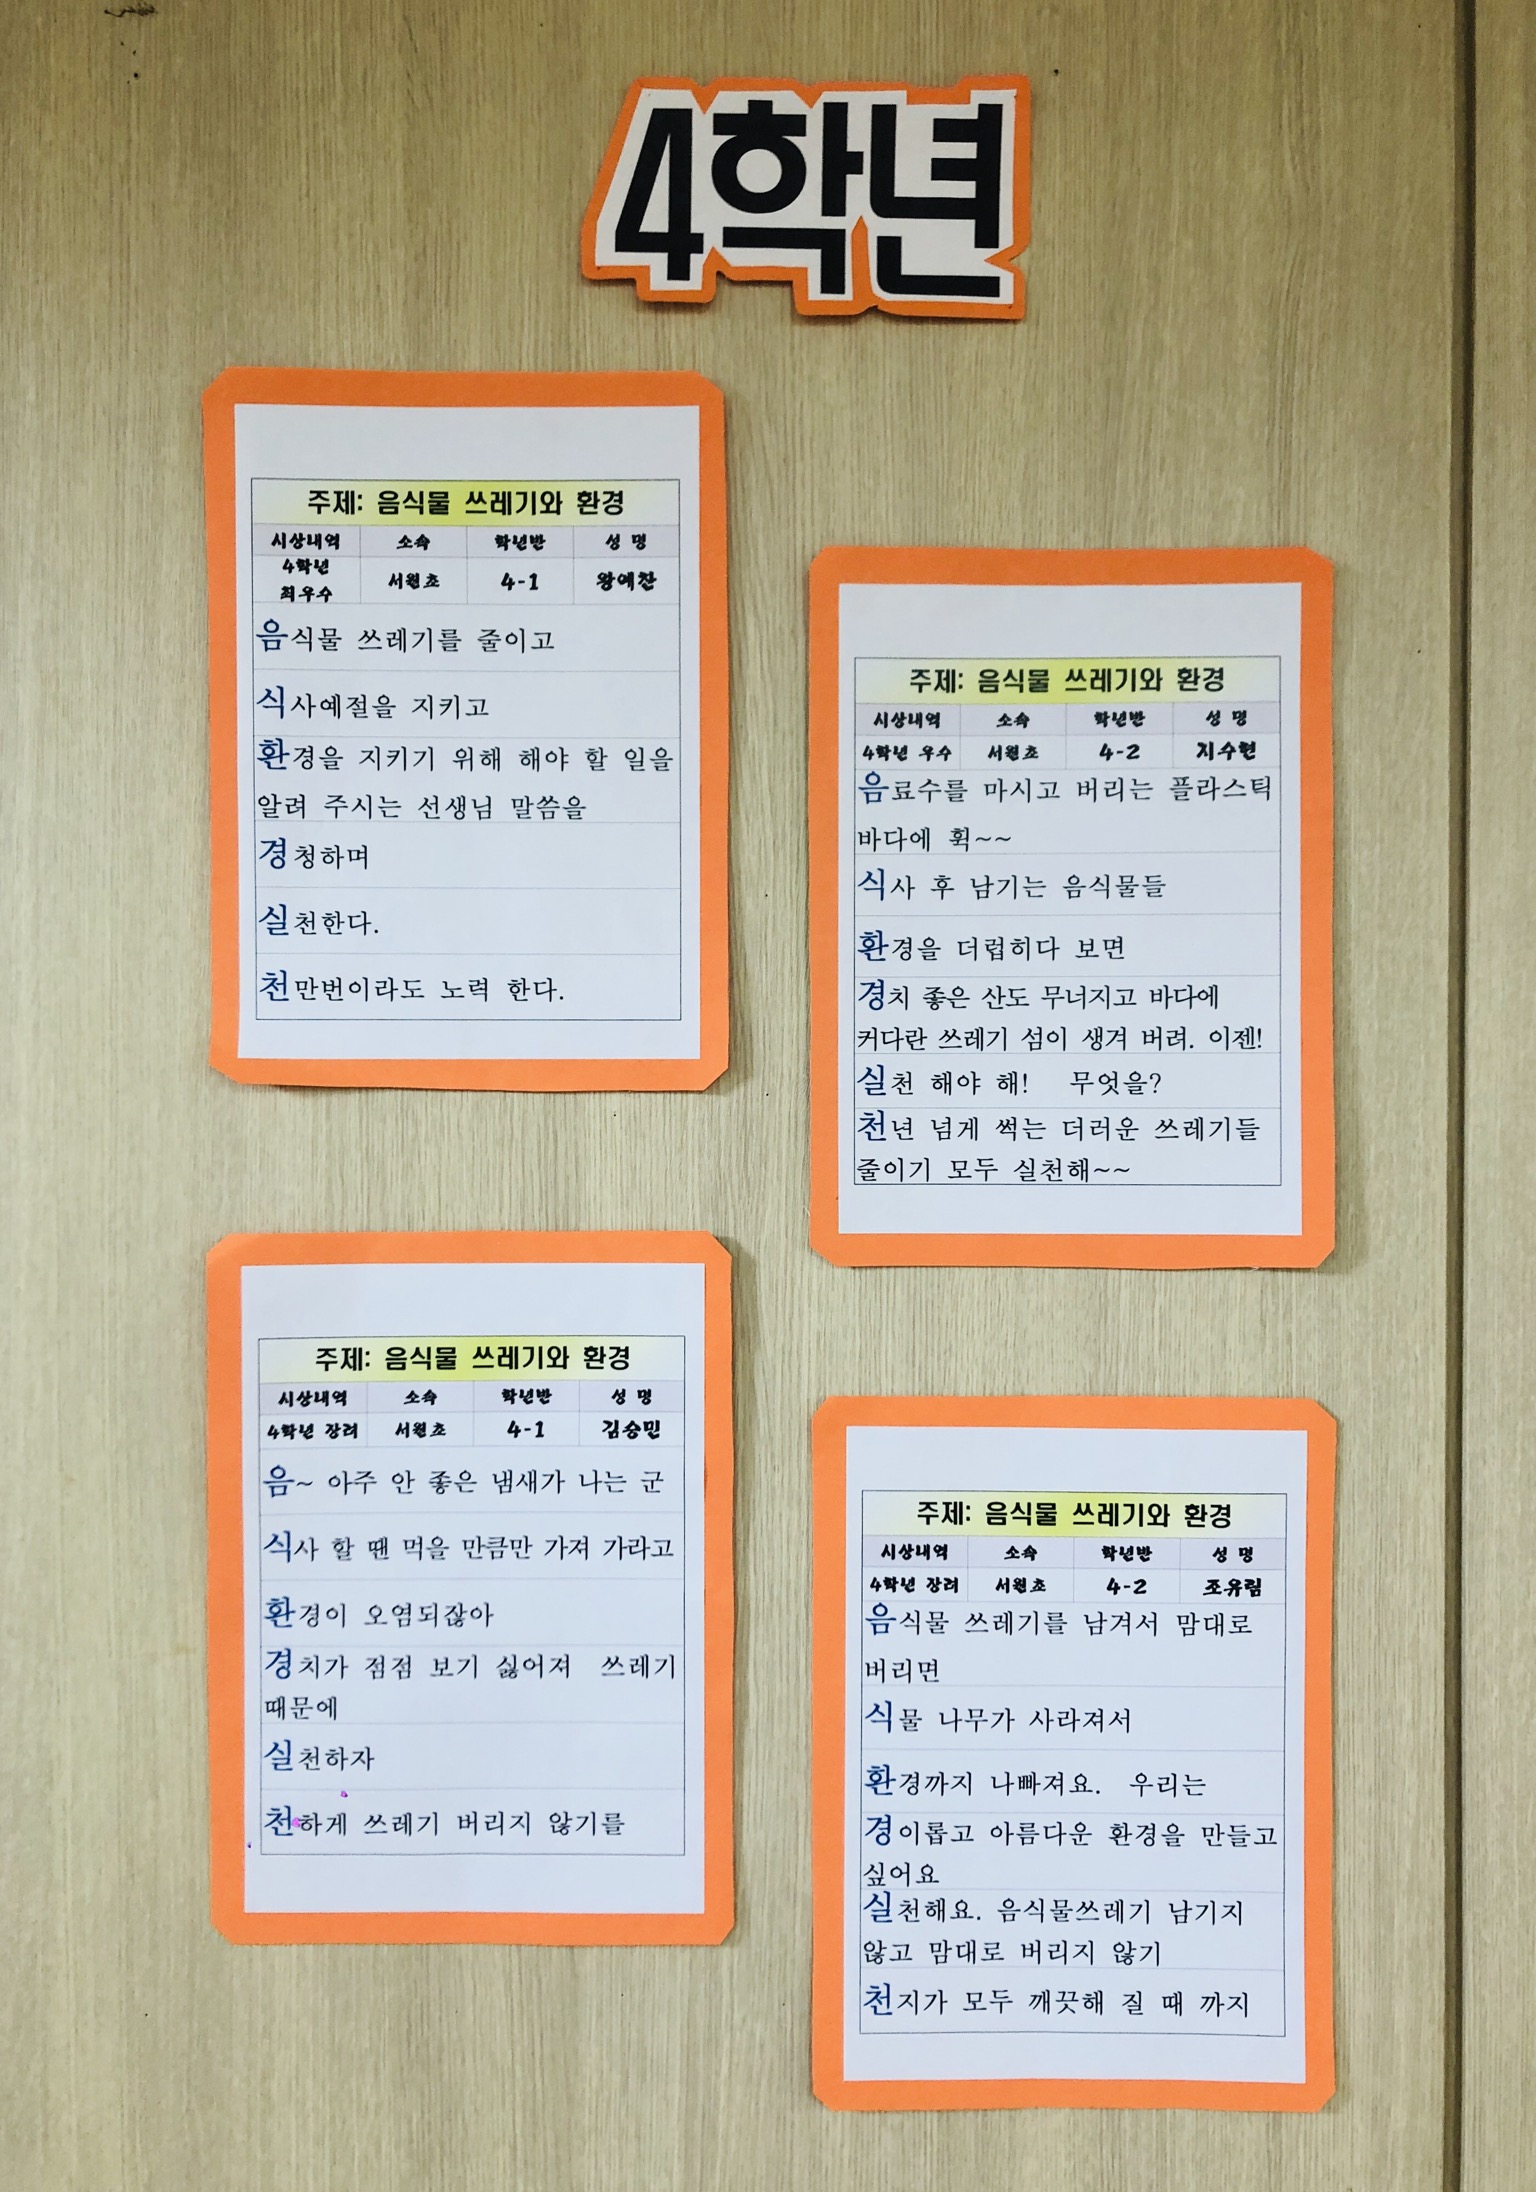 4학년
주제: 음식물 쓰레기와 환경
시상내역 소속 학년반 성 명
4학년
최우수 서원초 4-1 왕예찬
음식물 쓰레기를 줄이고
식사예절을 지키고
환경을 지키기 위해 해야 할 일을
알려 주시는 선생님 말씀을
경청하며
실천한다.
천만번이라도 노력 한다.
주제: 음식물 쓰레기와 환경
시상내역 소속 학년반 성 명
4학년 우수 서원초 4-2 지수현
음료수를 마시고 버리는 플라스틱
바다에 휙~~
식사 후 남기는 음식물들
환경을 더럽히다 보면
경치 좋은 산도 무너지고 바다에
커다란 쓰레기 섬이 생겨 버려. 이젠!
실천 해야 해! 무엇을?
천년 넘게 썩는 더러운 쓰레기들
줄이기 모두 실천해~~
주제: 음식물 쓰레기와 환경
시상내역 소속 학년반 성 명
4학년 장려 서원초 4-1 김승민
음~ 아주 안 좋은 냄새가 나는 군
식사 할 땐 먹을 만큼만 가져 가라고
환경이 오염되잖아
경치가 점점 보기 싫어져 쓰레기
때문에
실천하자
천하게 쓰레기 버리지 않기를
주제: 음식물 쓰레기와 환경
시상내역 소속 학년반 성 명
4학년 장려 서원초 4-2 조유림
음식물 쓰레기를 남겨서 맘대로
버리면
식물 나무가 사라져서
환경까지 나빠져요. 우리는
경이롭고 아름다운 환경을 만들고
싶어요
실천해요. 음식물쓰레기 남기지
않고 맘대로 버리지 않기
천지가 모두 깨끗해 질 때 까지